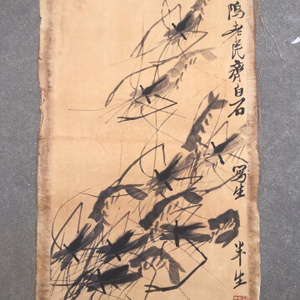 陽老民齊白石寫生半生